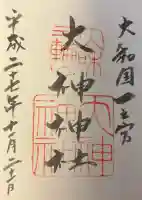 大和国一之宮
大神神社
平成二十七年十月二十二日